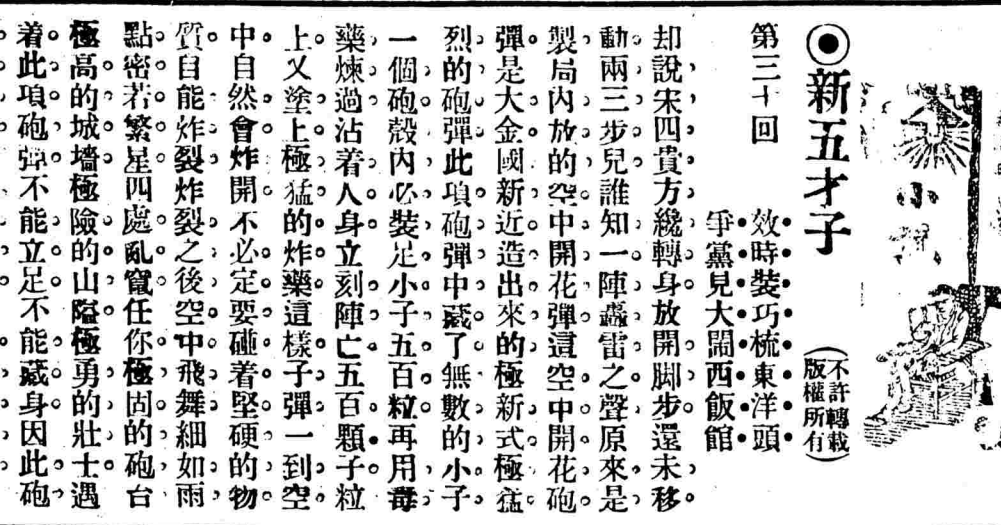 ◉新五才子
不許轉載
版權所有
第三十回
效時裝巧梳東洋頭
爭黨見大鬧西飯館
却說宋四貴方纔轉身放開脚步還未移
動兩三步兒誰知一陣轟雷之聲原來是
製局內放的空中開花彈這空中開花砲
彈是大金國新近造出來的極新式極猛
烈的砲彈此項砲彈中藏了無數的小子
一個砲殼內必裝足小子五百粒再用毒
藥煉過沾着人身立刻陣亡五百顆子粒
上又塗上極猛的炸藥這樣子彈一到空
中自然會炸開不必定要碰着堅硬的物
質自能炸裂炸裂之後空中飛舞細如雨
點密若繁星四處亂竄任你極固的砲台
極高的城墻極險的山隘極勇的壯士遇
着此項砲彈不能立足不能藏身因此砲